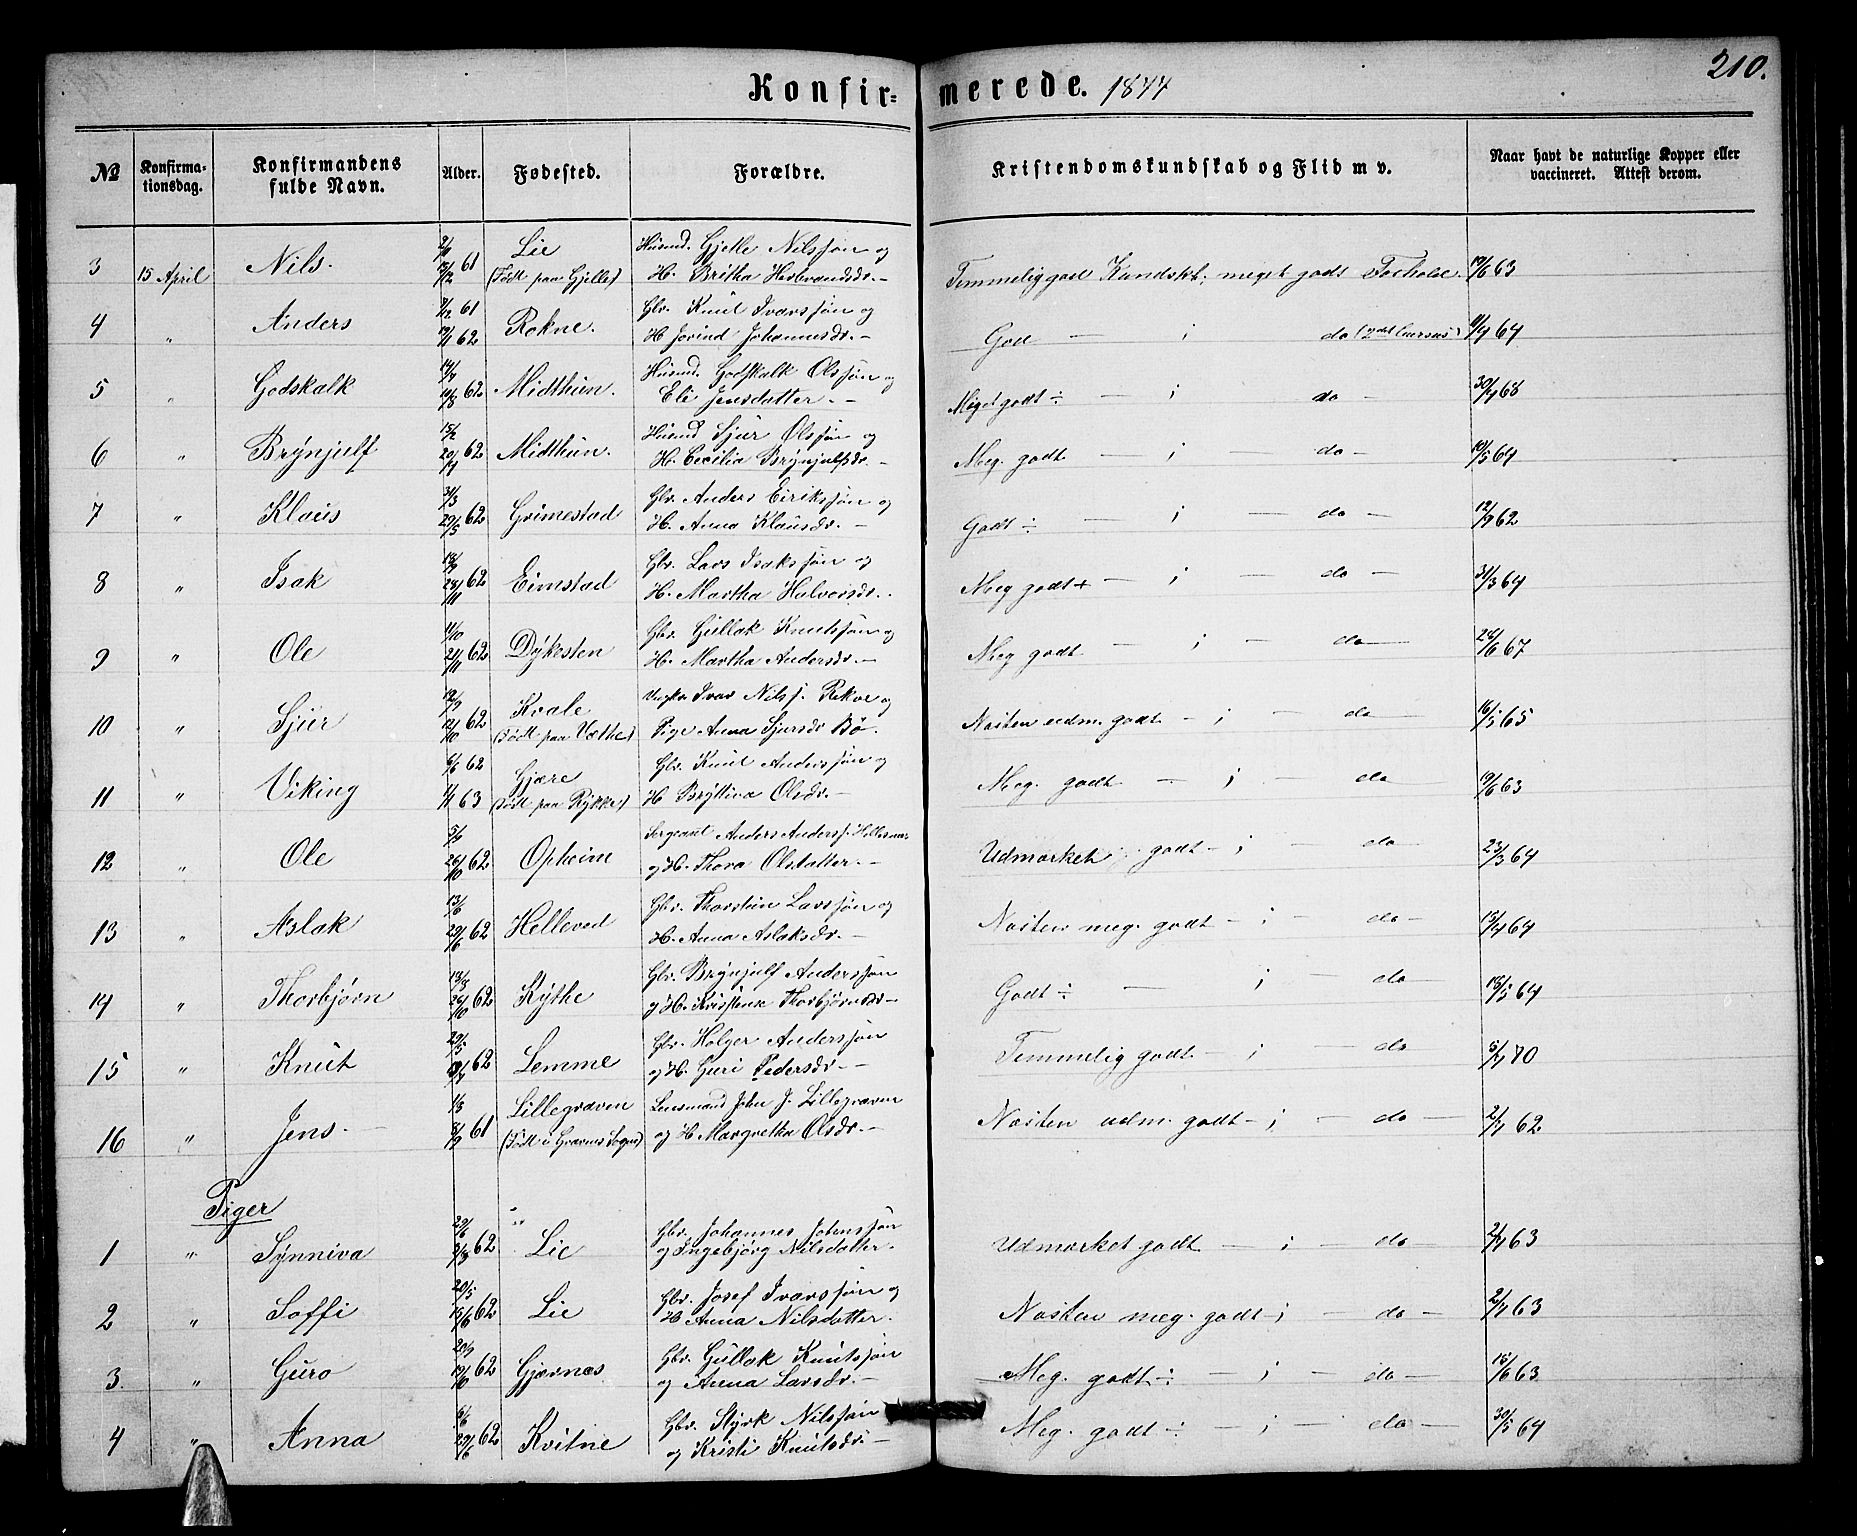 210.
Konfir= merede. 1877
№ Konfirma-tionsdag. Konfirmandens fulde Navn. Alder. Fødested. Forældre. Kristendomskundskab og Flid m v. Naar havt de naturlige Kopper eller vaccineret. Attest derom.
2/9 Lie Husmd. Gjelle Nilssøn og
3 15 April Nils. 15/12 61 (Født paa Gjelle) H. Britha Herbrandsdr. — Temmelig god Kundsk.; meget godt Forhold. 17/6 63
7/12 61 Gbr. Knut Ivarssøn og
4 " Anders 19/1 62 Rokne. H Jorind Johannesdr. — God — ; do (2det Cursus) 11/7 64
14/7 Husmd. Godskalk Olssøn og
5 " Godskalk 10/8 62 Midthun. Eli Jensdatter. — Meget godt ÷ — ; do — 30/7 68
15/2 Husmd Sjur Olssøn og
6 " Brynjulf 20/4 62 Midthun. H. Cecilia Brynjulfsdr. — Meg. godt — ; — do — 10/5 64
31/3 Gbr. Anders Eirikssøn og
7 " Klaus 29/5 62 Grimestad H. Anna Klausdr. — Godt ÷ — ; — do — 12/9 62
18/9 Gbr. Lars Isakssøn og
8 " Isak 28/11 62 Eimstad H. Martha Halvorsdr. Meg godt + — ; — do — 31/3 64
11/10 Gbr. Gullak Knutssøn og
9 " Ole 21/11 62 Dykesten H. Martha Andersdr. — Meg godt — ; — do — 28/6 67
19/9 Kvale Ungkr. Ivar Nilss. Rekve og
10 " Sjur 12/10 62 (Født paa Væthe) Pige Anna Sjursdr Bø. Næsten udm. godt — ; — do — 16/5 65
6/6 62 Gjære Gbr. Knut Anderssøn og
11 " Viking 1/1 63 (Født paa Rykke) H Bryttiva Olsdr. — Meg. godt — ; — do 19/6 63
5/9 Sergeant Anders Anderss. Hellesnæs
12 " Ole 26/10 62 Opheim og H. Thora Olsdatter. — Udmærket godt — ; — do — 23/3 64
13/6 Gbr. Thorstein Larssøn og
13 " Aslak 29/6 62 Helleved H. Anna Aslaksdr. — Næsten meg. godt — ; — do — 15/4 64
18/8 Gbr. Brynjulf Anderssøn
14 " Thorbjørn 26/10 62 Kythe og H. Kristense Thorbjørnsdr — Godt ÷ — ; — do — 18/5 64
29/5 Gbr. Holger Anderssøn
15 " Knut 62 Lemme og H. Guri Pedersdr. — Temmelig godt — ; — do — 5/7 70
1/8 Lillegraven Lensmand John J. Lillegraven
16 " Jens. — 8/9 61 (Født i Gravens Sogn) og H Margretha Olsdr. — Næsten udm. godt — ; — do — 2/7 62
Piger
29/6 Gbr. Johannes Johnssøn
1 " Synniva 2/8 62 Lie og Ingebjørg Nilsdatter. Udmærket godt — ; — do — 2/7 63
20/5 Gbr. Josef Ivarssøn og
2 " Soffi 15/6 62 Lie H Anna Nilsdatter. Næsten meg. godt — ; — do — 2/7 63
20/9 Gbr. Gullak Knutssøn
3. " Guro 19/10 62 Gjærnæs og Anna Larsdr. — Meg. godt ÷ — ; — do — 15/6 63
6/6 Gbr. Styrk Nilssøn
4 " Anna 29/6 62 Kvitne og Kristi Knutsdr. — Meg. godt ÷ — ; — do — 30/5 64